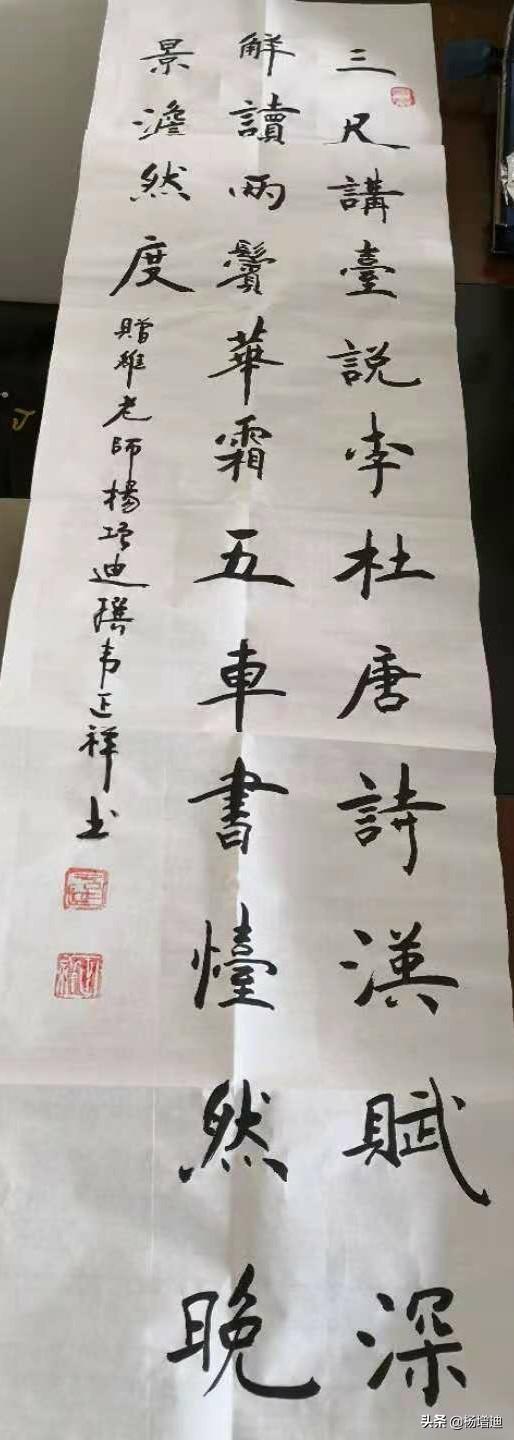 三尺講臺説李杜唐詩漢賦深
解讀兩鬢華霜五車書懛然晚
景澹然度
贈雒老師楊增迪撰韦正祥书
头条 @杨增迪